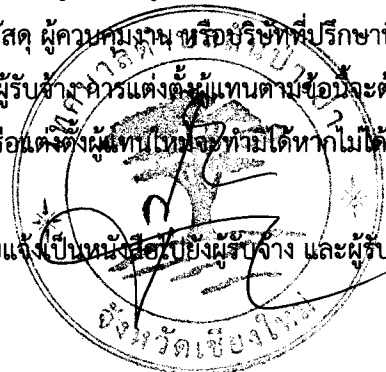 ัสดุ ผู้ควบคุมงาน หรือบริษัทที่ปรึกษา
ผู้รับจ้าง การแต่งตั้งผู้แทนตามข้อนี้จะต้
รือแต่งตั้งผู้แทนใหม่จะทำมิได้หากไม่ได้
แจ้งเป็นหนังสือไปยังผู้รับจ้าง และผู้รับ
จังหวัดเชียงใหม่